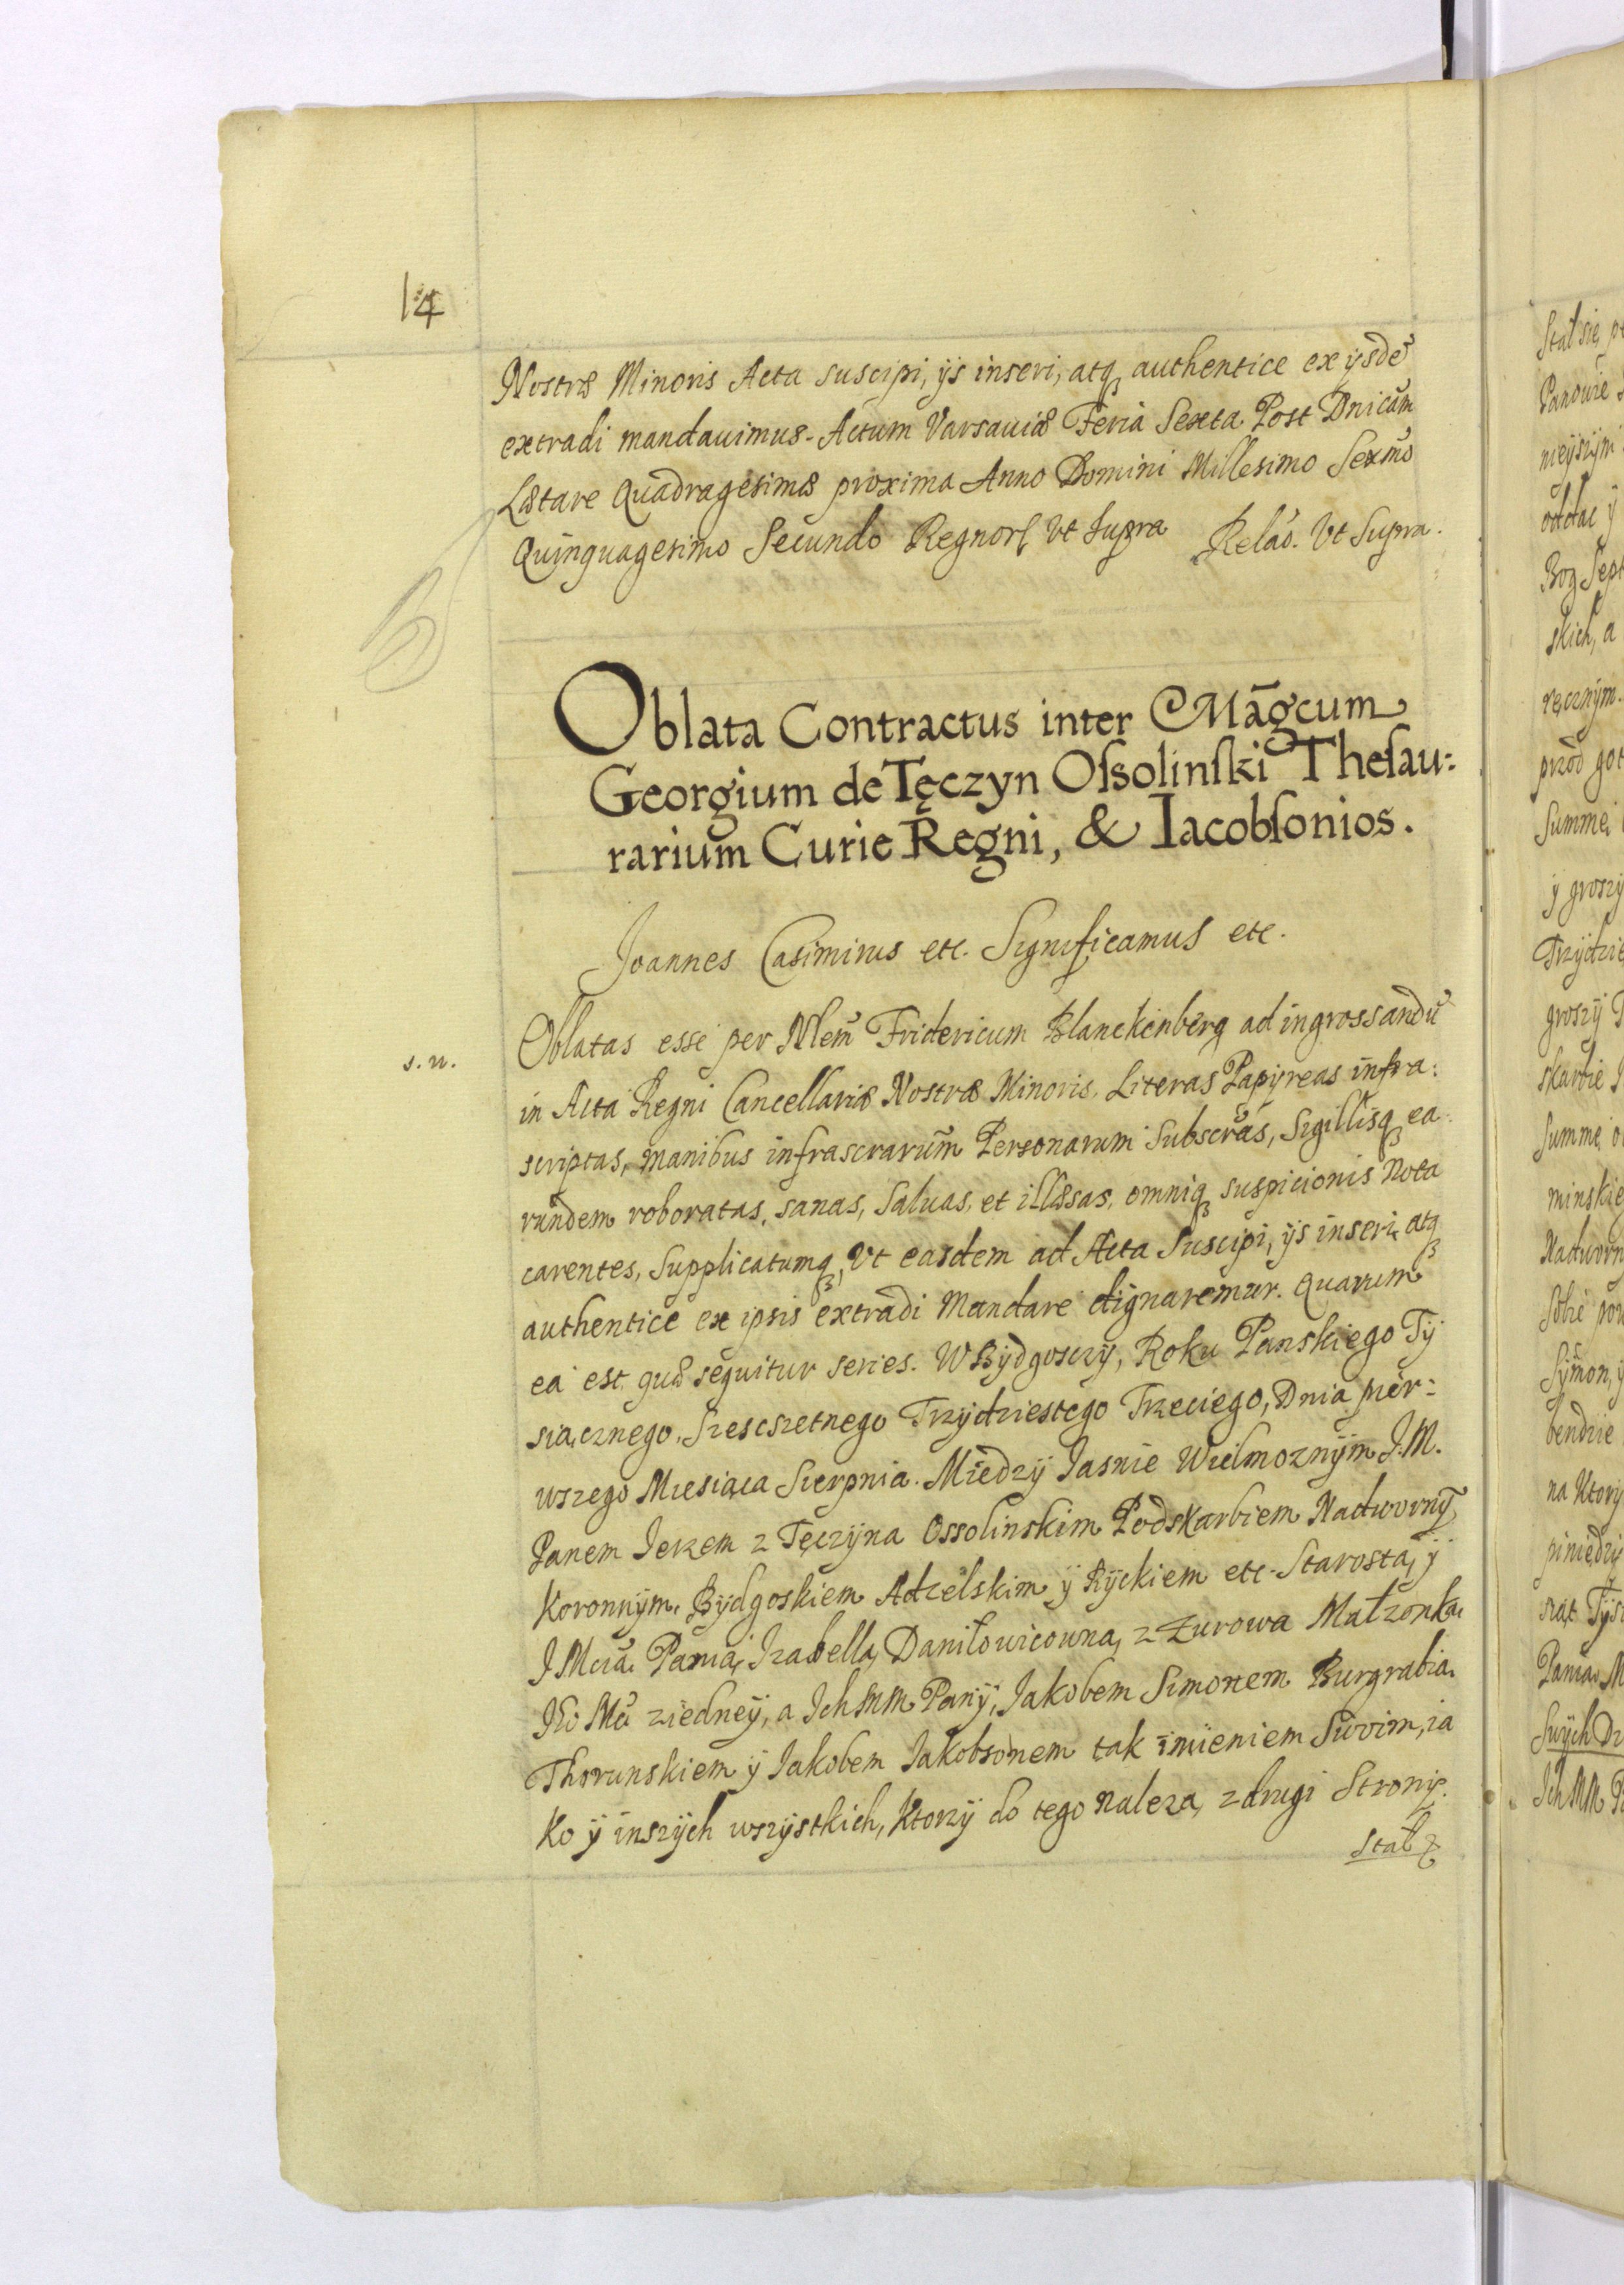 14
Nostræ Minoris Acta suscipi, ÿs inseri, atq₃ authentice ex ÿsdē
extradi mandauimus. Actum Varsauiæ Feria Sexta Post Dnicam
Lætare Quadragesimæ proxima Anno Domini Millesimo Sexmo
Quinquagesimo Secundo Regnor Vt Supra Relao. Vt Supra.
Oblata Contractus inter Mãgcum
Georgium de Tęczyn Oſsolinſki Theſau:
rarium Curie Regni, & Iacobſonios.
Joannes Casimirus etc. Significamus etc.
s. n.
Oblatas esse per Nlem Fridericum Blanckenberg ad ingrossandū
in Acta Regni Cancellariæ Nostræ Minoris, Literas Papÿreas infra:
scriptas, manibus infrascrarum Personarum Subscras, Sigillisq₃ ea
rundem roboratas, sanas, saluas, et illæsas, omniq₃ suspicionis nota
carentes, Supplicatumq₃, Vt easdem ad Acta Suscipi, ÿs inseri, atq₃
authentice ex ipsis extradi Mandare dignaremur. Quarum
ea est quæ sequitur series. W Bÿdgosczÿ, Roku Panskiego Tÿ
siącznego, Szescsetnego Trzÿdziestego Trzeciego, Dnia pier:
wszego Miesiąca Sierpnia. Miedzÿ Iasnie Wielmoznÿm J. M.
Panem Jerzem z Tęczÿna Ossolinskim Podskarbiem Nadwornÿ
Koronnÿm, Bÿdgoskiem Adzelskim ÿ Rÿckiem etc. Starostą, ÿ
J Mcią Panią, Izabellą Daniłowicowną, z Zurowa Małzonką
Jeo Mci ziedneÿ, a Ich Mm Panÿ, Jakobem Simonem Burgrabią
Thorunskiem ÿ Jakobem Jakobsonem tak imieniem Swoim, ia
ko ÿ inszÿch wszÿstkich, ktorzÿ do tego nalezą, z drugi Stronÿ.
Stał